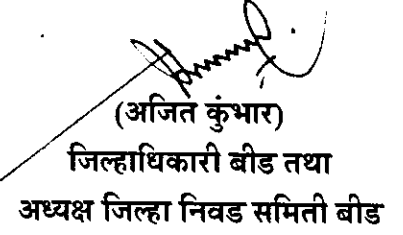 (अजित कुंभार)
जिल्हाधिकारी बीड तथा
अध्यक्ष जिल्हा निवड समिती बीड